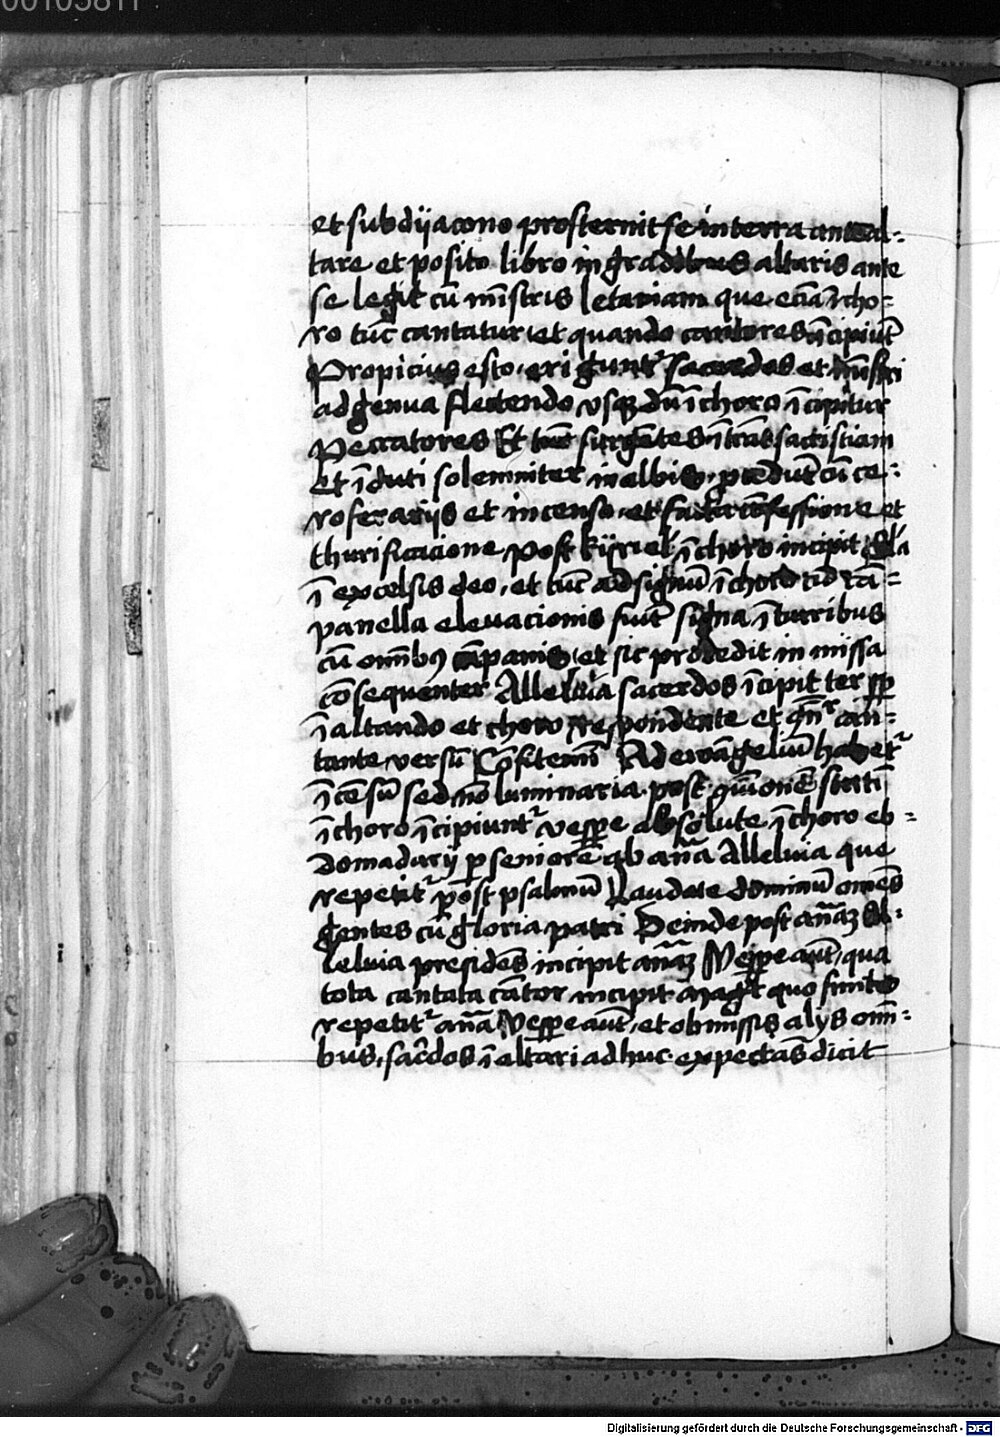 00105811
et subdÿacono prosternit se in terra ante al-
tare et posito libro in gradibus altaris ante
se legit cū mīstris letaniam que eciā ī cho-
ro tūc cantatur et quando cantores īcipiūt
Propicius esto erigunt͛ sacerdos et mīstri
ad genua flectendo vsq dū ī choro īcipitur
Peccatores Et tūc surgētes ītrāt sacristiam
et īduti solemniter in albis ꝓcedūt cū ce-
roferarijs et incenso et facta cōfessione et
thurificacione post kÿriel ī choro incipit Glā
ī excelsis deo, et tūc ad signū ī choro cū cā-
panella eleuacionis fiūt signa ī turribus
cū omībꝰ cāpanis et sic procedit in missa
cōsequenter Alleluia sacerdos īcipit ter sp̄
ī altando et choro respondente et q̄n͛ can-
tante versū Cōfitemī Ad ewāgeliū habet͛
īcēsū sed nō luminaria post cōionē statī
ī choro īcipiunt͛ vesp̄e absolute ī choro eb-
domadarÿ p seniorē sb an̄a Alleluia que
repetit͛ post psalmū Laudate dominū omēs
gentes cū gloria patri Deinde post an̄aꝫ Al-
leluia presidēs incipit an̄aꝫ Vesp̄e aūt, qua
tota cantata cātor incipit Maḡt quo finito
repetit͛ an̄a Vesp̄e aūt, et obmissis alÿs omī-
bus, sac̄dos ī altari adhuc expectās dicit
Digitalisierung gefördert durch die Deutsche Forschungsgemeinschaft - DFG